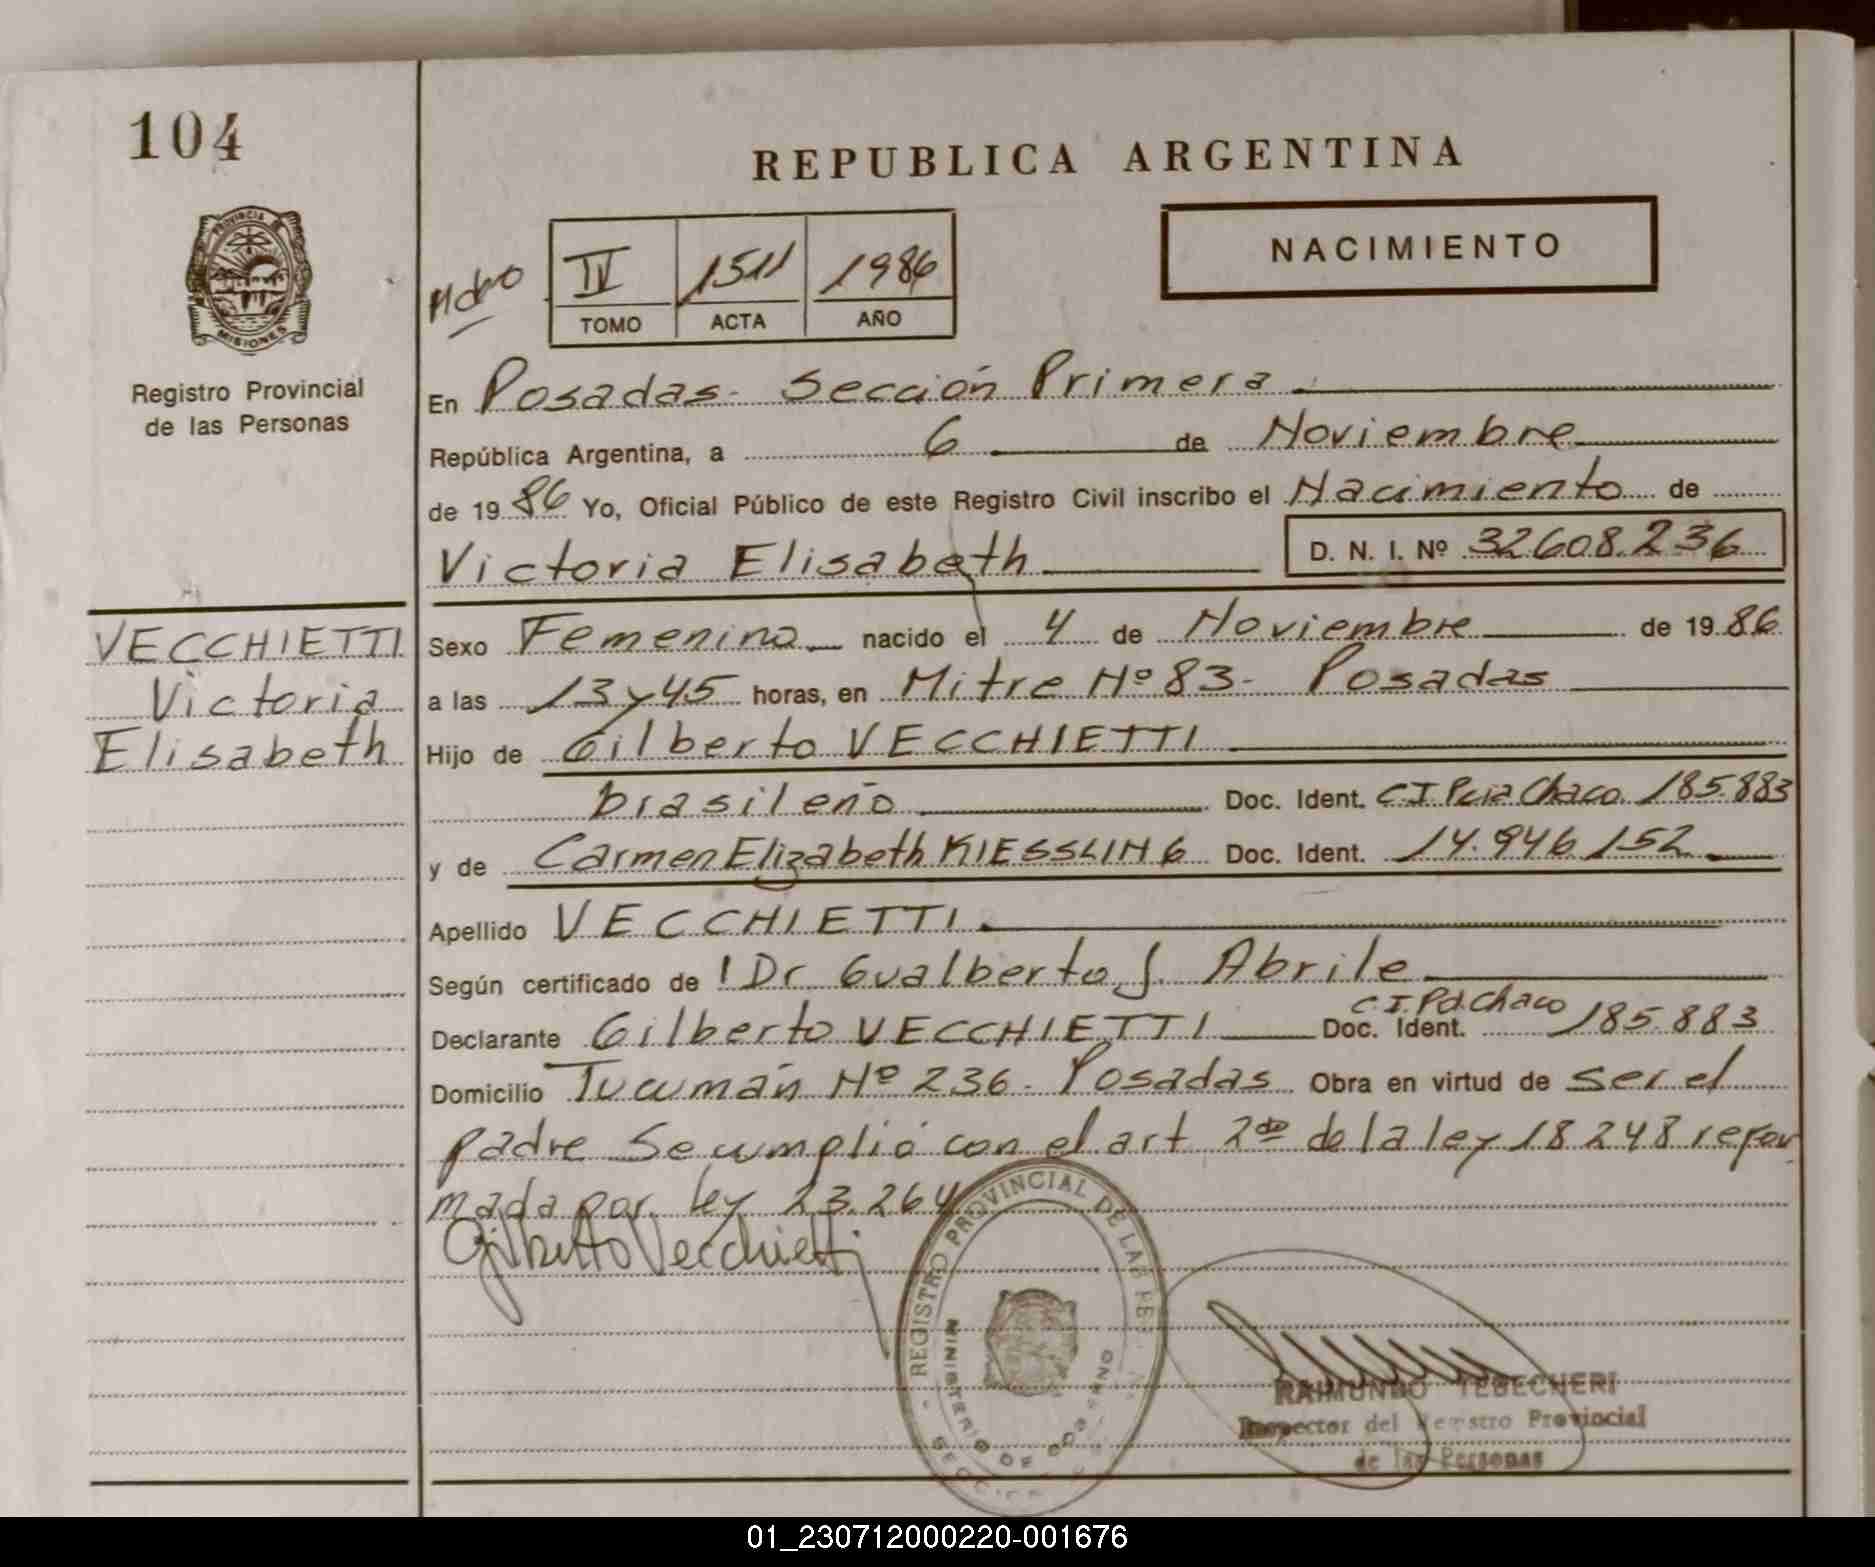 104
REPUBLICA ARGENTINA
PROVINCIA DE
MISIONES
Registro Provincial
de las Personas
NACIMIENTO
IV 1511 1986
TOMO ACTA AÑO
En Posadas - Sección Primera
República Argentina, a 6 de Noviembre
de 1986 Yo, Oficial Público de este Registro Civil inscribo el Nacimiento de
Victoria Elisabeth D. N. I. Nº 32608.236
VECCHIETTI
Victoria
Elisabeth
Sexo Femenino nacido el 4 de Noviembre de 1986
a las 13 y 45 horas, en Mitre Nº 83 - Posadas
Hijo de Gilberto VECCHIETTI
brasileño Doc. Ident. C.I. Pcia Chaco 185.883
y de Carmen Elizabeth KIESSLING Doc. Ident. 14.946.152
Apellido VECCHIETTI
Según certificado de l Dr Gualberto J. Abrile
Declarante Gilberto VECCHIETTI Doc. Ident. C.I. Pd. Chaco 185.883
Domicilio Tucumán Nº 236 - Posadas Obra en virtud de ser el
padre Se cumplió con el art 2do de la ley 18 248 refor
mada por ley 23.264
Gilberto Vecchietti
REGISTRO PROVINCIAL DE LAS PE
MINISTERIO DE GOBIERNO
RAIMUNDO TEBECHERI
Inspector del Registro Provincial
de las Personas
01_230712000220-001676